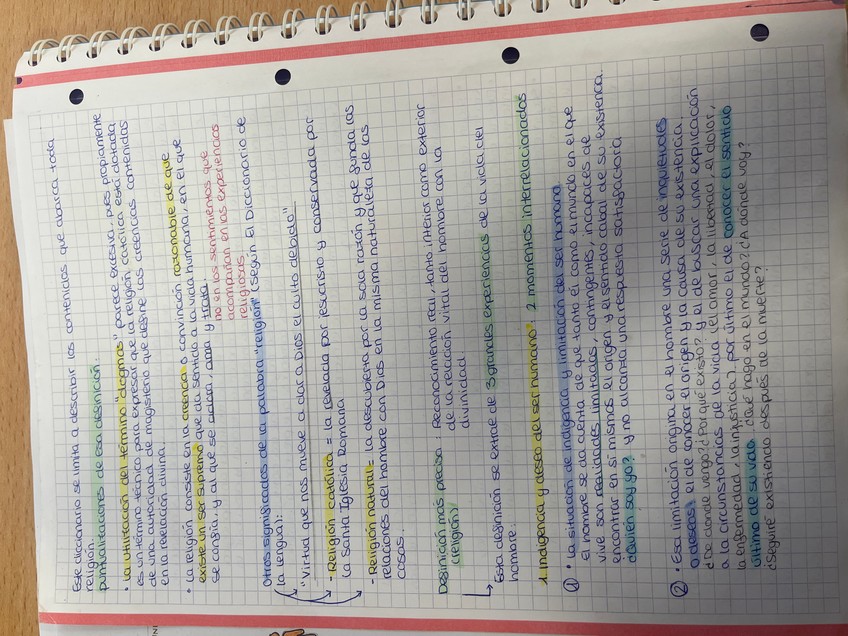 Este diccionario se limita a describir los contenidos que abarca toda
religión.
puntualizaciones de esa definición:
• La utilización del término "dogmas" parece excesiva, pues propiamente
es un término técnico para expresar que la religión católica está dotada
de una autoridad de magisterio que define las creencias contenidas
en la revelación divina.
• La religión consiste en la creencia o convicción razonable de que
existe un ser supremo que da sentido a la vida humana, en el que
se confía, y al que se adora, ama y trata.
no en los sentimientos que
acompañan en las experiencias
religiosas.
Otros significados de la palabra "religión" (según El Diccionario de
la lengua):
"Virtud que nos mueve a dar a Dios el culto debido"
- Religión católica = la revelada por Jesucristo y conservada por
la Santa Iglesia Romana
- Religión natural = la descubierta por la sola razón y que funda las
relaciones del hombre con Dios en la misma naturaleza de las
cosas.
Definición más precisa: Reconocimiento real, tanto interior como exterior
(religión) de la relación vital del hombre con la
divinidad
↳ Esta definición se extrae de 3 grandes experiencias de la vida del
hombre:
1. Indigencia y deseo del ser humano: 2 momentos interrelacionados
① • La situación de indigencia y limitación del ser humano.
el hombre se da cuenta de que tanto él como el mundo en el que
vive son realidades limitadas, contingentes, incapaces de
encontrar en sí mismos el origen y el sentido cabal de su existencia.
¿quién soy yo? y no alcanza una respuesta satisfactoria
② • Esa limitación origina en el hombre una serie de inquietudes
o deseos, el de conocer el origen y la causa de su existencia.
¿De donde vengo? ¿Por qué existo? y el de buscar una explicación
a la circunstancias de la vida (el amor, la libertad, el dolor,
la enfermedad, la injusticia), por último el de conocer el sentido
último de su vida. ¿Qué hago en el mundo? ¿A dónde voy?
¿Seguiré existiendo después de la muerte?